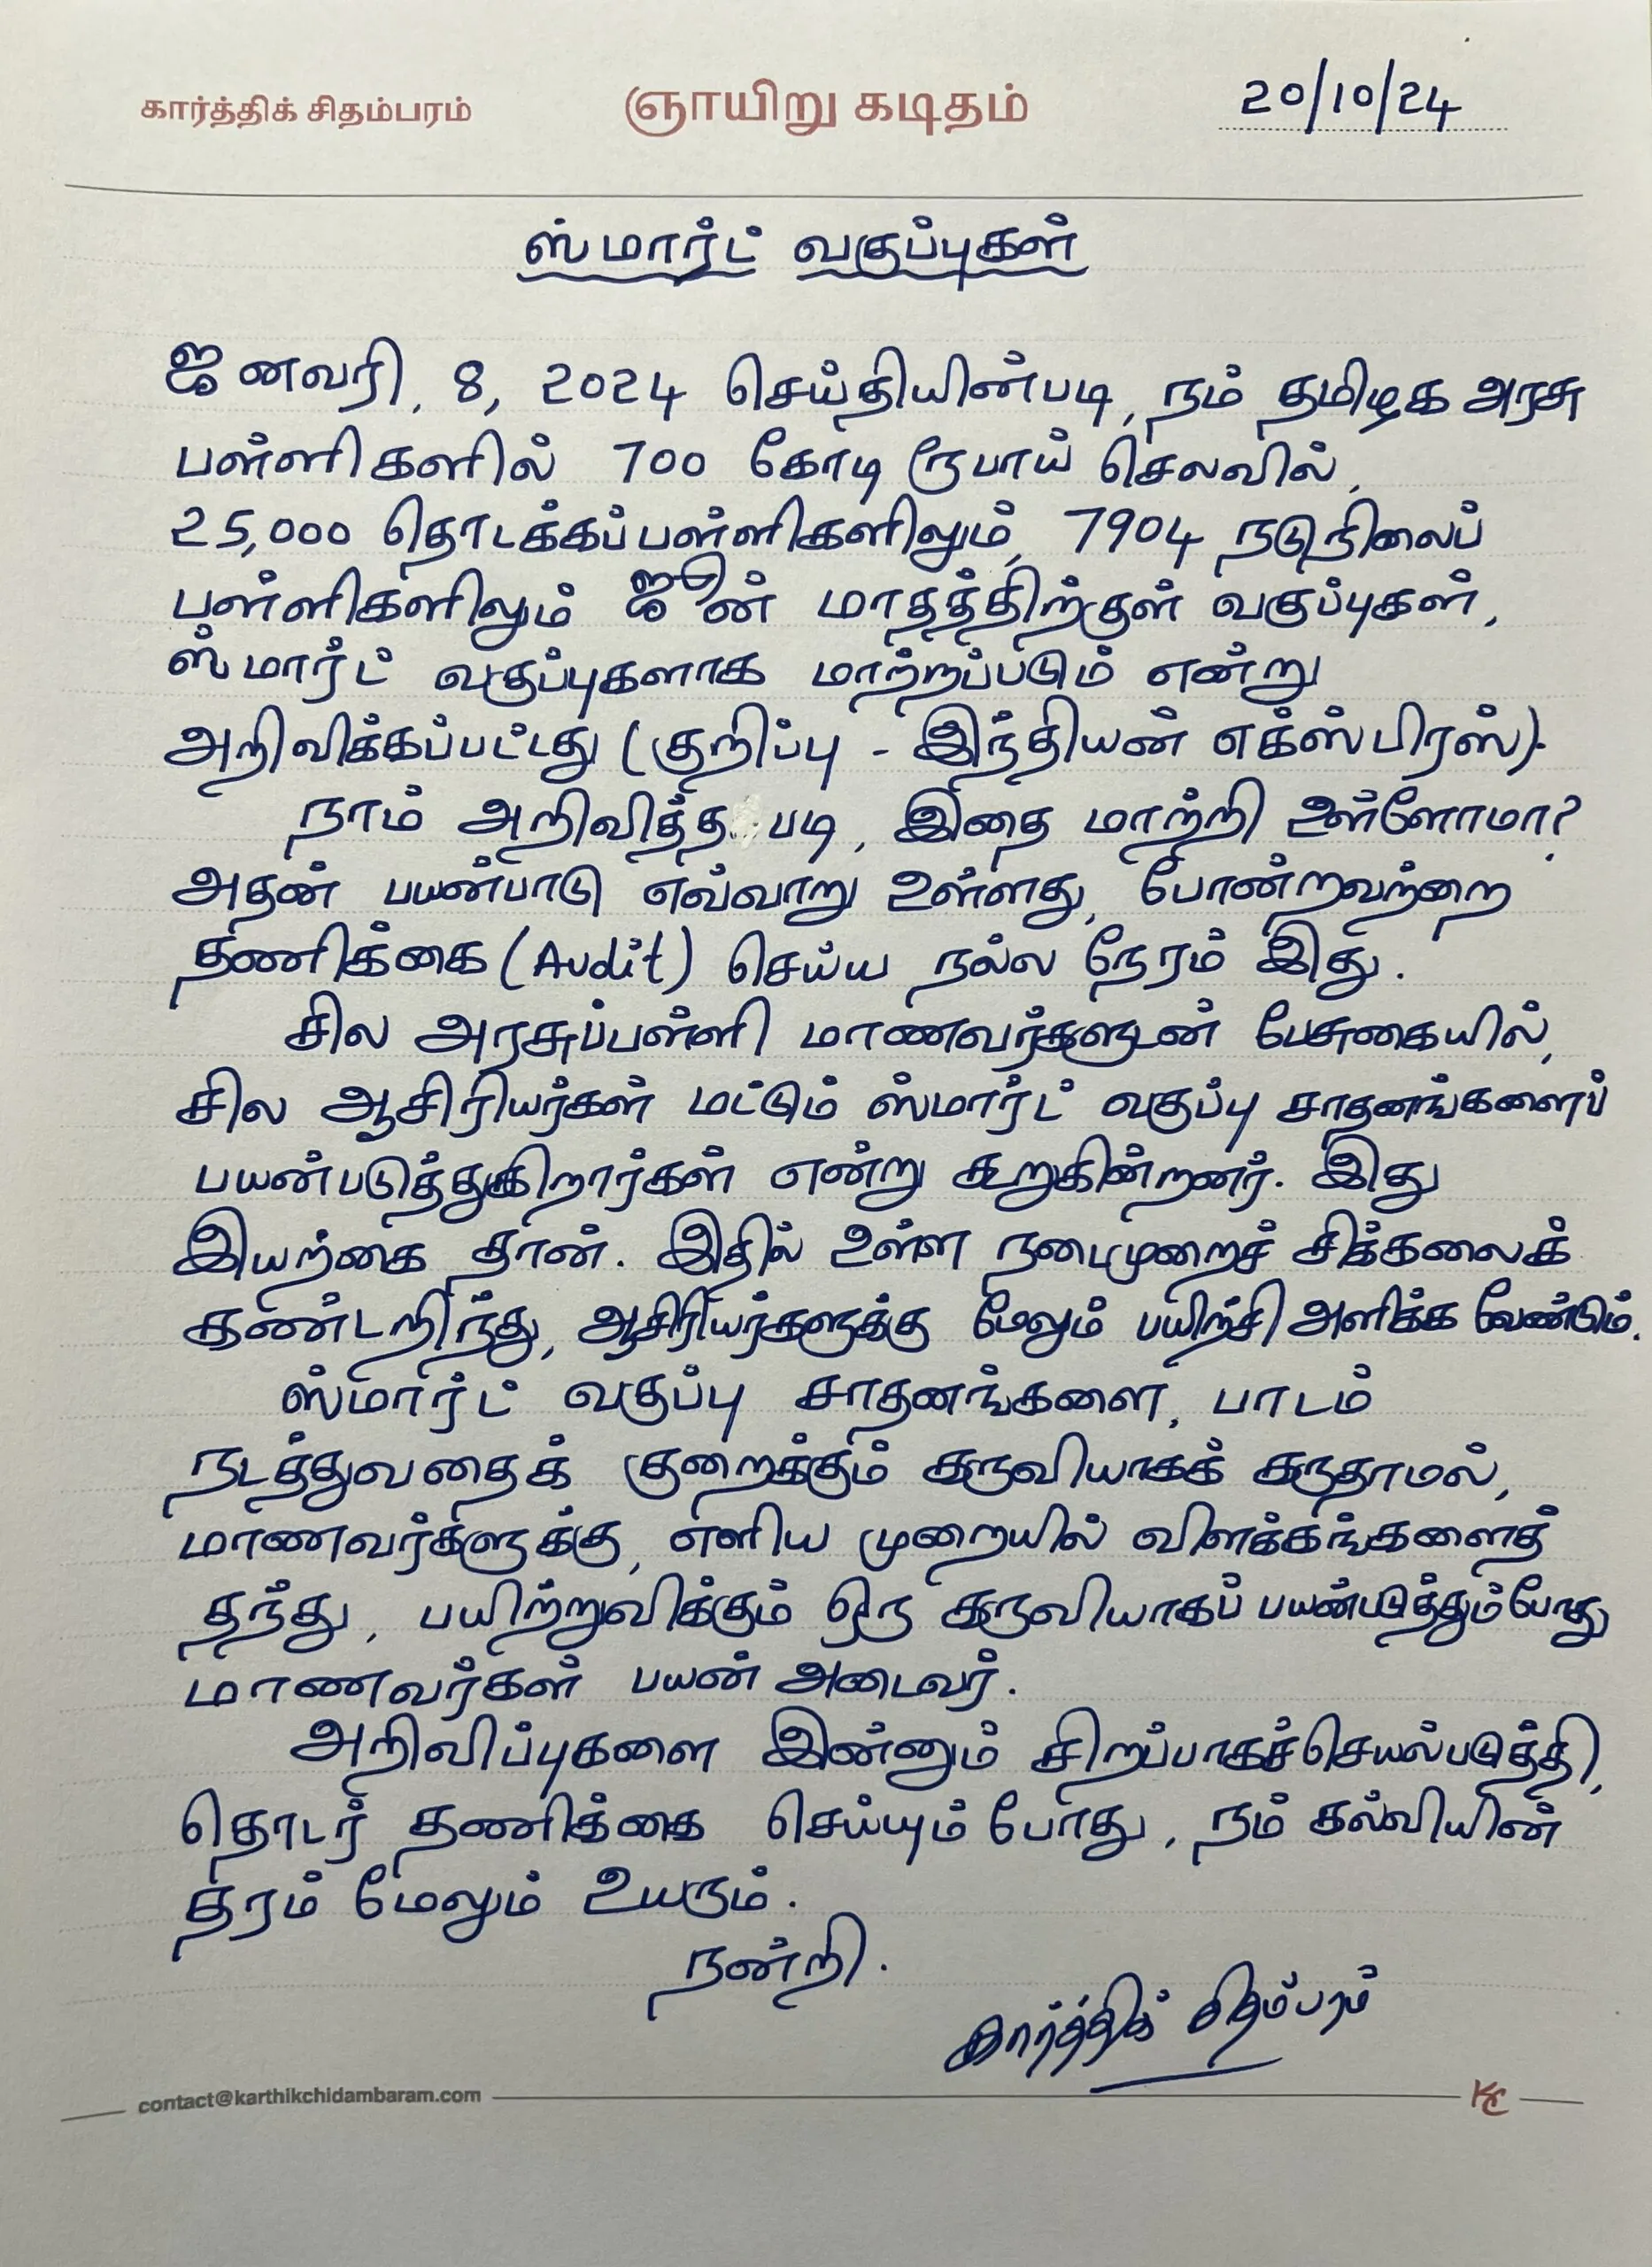 கார்த்திக் சிதம்பரம்
ஞாயிறு கடிதம்
20/10/24
ஸ்மார்ட் வகுப்புகள்
ஜனவரி, 8, 2024 செய்தியின்படி, நம் தமிழக அரசு
பள்ளிகளில் 700 கோடி ரூபாய் செலவில்,
25,000 தொடக்கப்பள்ளிகளிலும், 7904 நடுநிலைப்
பள்ளிகளிலும் ஜூன் மாதத்திற்குள் வகுப்புகள்,
ஸ்மார்ட் வகுப்புகளாக மாற்றப்படும் என்று
அறிவிக்கப்பட்டது (குறிப்பு - இந்தியன் எக்ஸ்பிரஸ்).
நாம் அறிவித்த படி, இதை மாற்றி உள்ளோமா?
அதன் பயன்பாடு எவ்வாறு உள்ளது, போன்றவற்றை
தணிக்கை (Audit) செய்ய நல்ல நேரம் இது.
சில அரசுப்பள்ளி மாணவர்களுடன் பேசுகையில்,
சில ஆசிரியர்கள் மட்டும் ஸ்மார்ட் வகுப்பு சாதனங்களைப்
பயன்படுத்துகிறார்கள் என்று கூறுகின்றனர். இது
இயற்கை தான். இதில் உள்ள நடைமுறைச் சிக்கலைக்
கண்டறிந்து, ஆசிரியர்களுக்கு மேலும் பயிற்சி அளிக்க வேண்டும்.
ஸ்மார்ட் வகுப்பு சாதனங்களை, பாடம்
நடத்துவதைக் குறைக்கும் கருவியாகக் கருதாமல்,
மாணவர்களுக்கு, எளிய முறையில் விளக்கங்களைத்
தந்து, பயிற்றுவிக்கும் ஒரு கருவியாகப் பயன்படுத்தும்போது
மாணவர்கள் பயன் அடைவர்.
அறிவிப்புகளை இன்னும் சிறப்பாகச்செயல்படுத்தி,
தொடர் தணிக்கை செய்யும்போது, நம் கல்வியின்
தரம் மேலும் உயரும்.
நன்றி.
கார்த்திக் சிதம்பரம்
contact@karthikchidambaram.com
KC